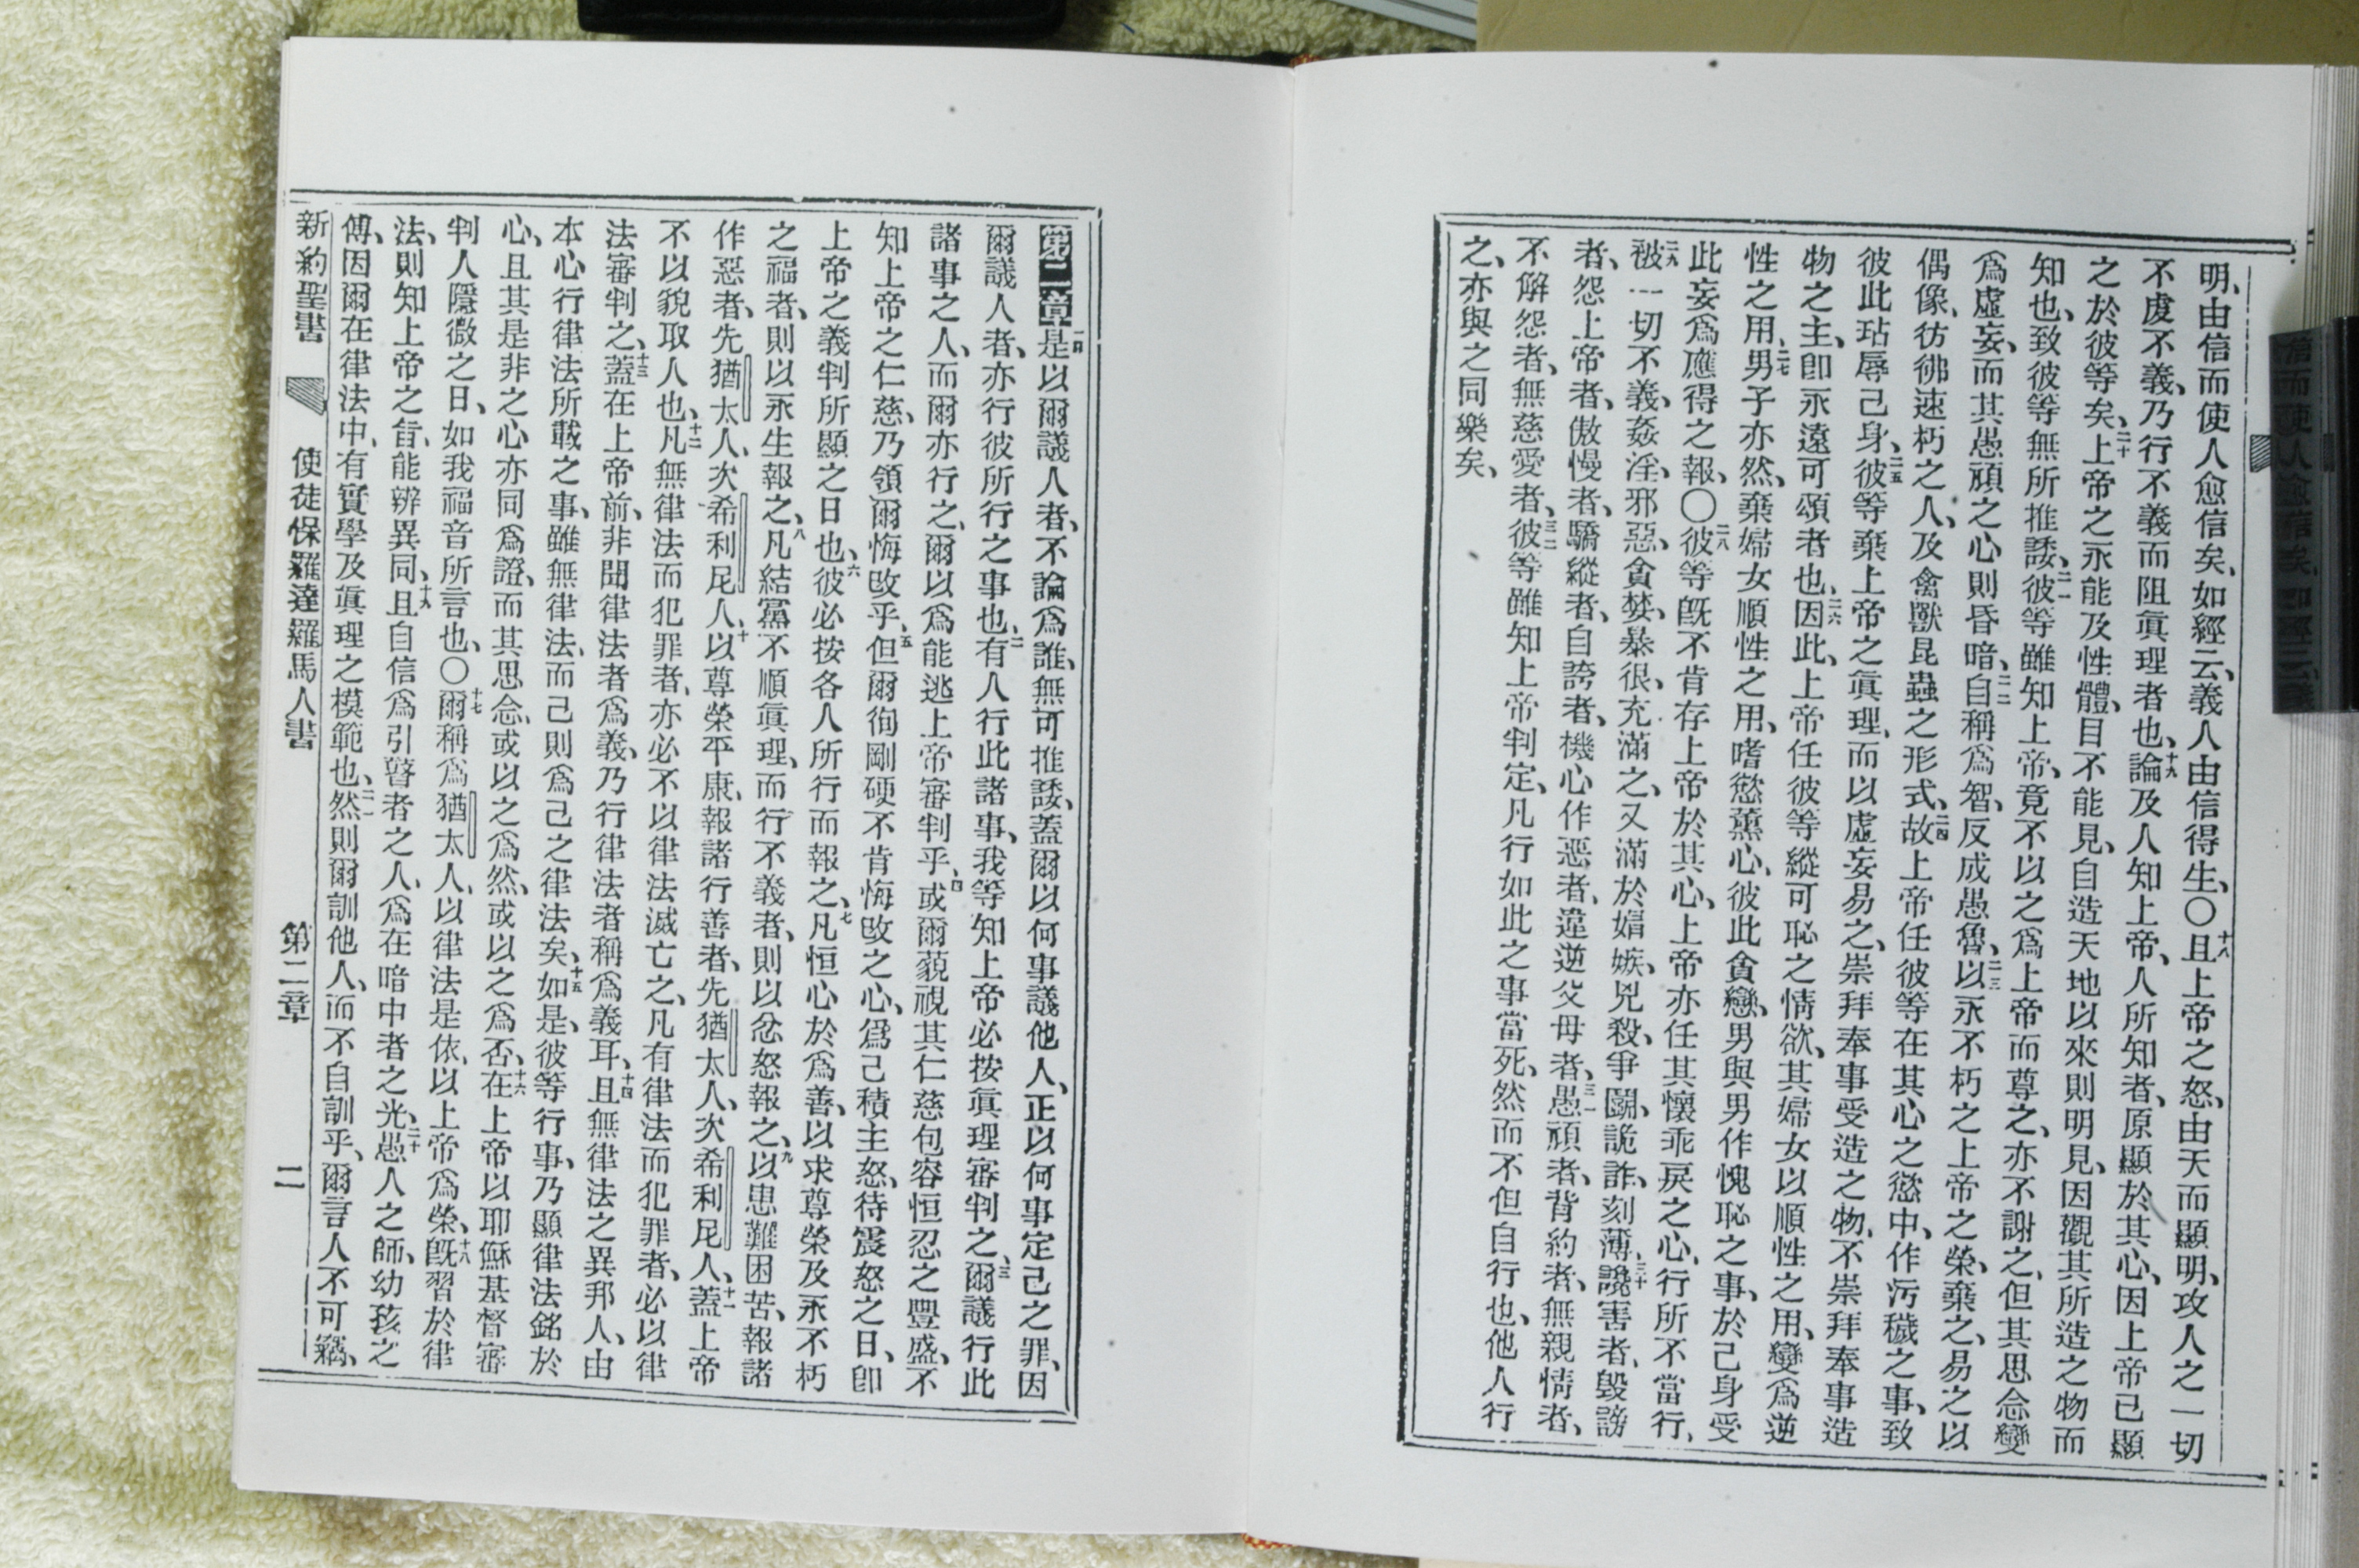 明、由信而使人愈信矣、如經云、義人由信得生、〇十八且上帝之怒、由天而顯明、攻人之一切
不虔不義、乃行不義而阻眞理者也、十九論及人知上帝、人所知者、原顯於其心、因上帝已顯
之於彼等矣、二十上帝之永能及性體、目不能見、自造天地以來則明見、因觀其所造之物而
知也、致彼等無所推諉、二一彼等雖知上帝、竟不以之爲上帝而尊之、亦不謝之、但其思念變
爲虛妄、而其愚頑之心則昏暗、二二自稱爲智、反成愚魯、二三以永不朽之上帝之榮、棄之、易之以
偶像、彷彿速朽之人、及禽獸昆蟲之形式、二四故上帝任彼等在其心之慾中、作污穢之事、致
彼此玷辱己身、二五彼等棄上帝之眞理、而以虛妄易之、崇拜奉事受造之物、不崇拜奉事造
物之主、卽永遠可頌者也、二六因此、上帝任彼等縱可恥之情欲、其婦女以順性之用、變爲逆
性之用、二七男子亦然、棄婦女順性之用、嗜慾薰心、彼此貪戀、男與男作愧恥之事、於己身受
此妄爲應得之報、〇二八彼等旣不肯存上帝於其心、上帝亦任其懷乖戾之心、行所不當行、
二九被一切不義、姦淫、邪惡、貪婪、暴很、充滿之、又滿於媢嫉、兇殺、爭鬭、詭詐、刻薄、三十讒害者、毀謗
者、怨上帝者、傲慢者、驕縱者、自誇者、機心作惡者、違逆父母者、三一愚頑者、背約者、無親情者、
不解怨者、無慈愛者、三二彼等雖知上帝判定、凡行如此之事當死、然而不但自行也、他人行
之、亦與之同樂矣、
第二章一節是以爾議人者、不論爲誰、無可推諉、蓋爾以何事議他人、正以何事定己之罪、因
爾議人者、亦行彼所行之事也、二有人行此諸事、我等知上帝必按眞理審判之、三爾議行此
諸事之人、而爾亦行之、爾以爲能逃上帝審判乎、四或爾藐視其仁慈包容恒忍之豐盛、不
知上帝之仁慈、乃領爾悔改乎、五但爾徇剛硬不肯悔改之心、爲己積主怒、待震怒之日、卽
上帝之義判所顯之日也、六彼必按各人所行而報之、七凡恒心於爲善、以求尊榮及永不朽
之福者、則以永生報之、八凡結黨不順眞理、而行不義者、則以忿怒報之、九以患難困苦、報諸
作惡者、先猶太人、次希利尼人、十以尊榮平康、報諸行善者、先猶太人、次希利尼人、十一蓋上帝
不以貌取人也、十二凡無律法而犯罪者、亦必不以律法滅亡之、凡有律法而犯罪者、必以律
法審判之、十三蓋在上帝前、非聞律法者爲義、乃行律法者稱爲義耳、十四且無律法之異邦人、由
本心行律法所載之事、雖無律法、而己則爲己之律法矣、十五如是、彼等行事、乃顯律法銘於
心、且其是非之心亦同爲證、而其思念、或以之爲然、或以之爲否、十六在上帝以耶穌基督審
判人隱微之日、如我福音所言也、〇十七爾稱爲猶太人、以律法是依、以上帝爲榮、十八旣習於律
法、則知上帝之旨、能辨異同、十九且自信爲引瞽者之人、爲在暗中者之光、二十愚人之師、幼孩之
傅、因爾在律法中、有實學及眞理之模範也、二一然則爾訓他人、而不自訓乎、爾言人不可竊、
新約聖書　使徒保羅達羅馬人書　第二章　二